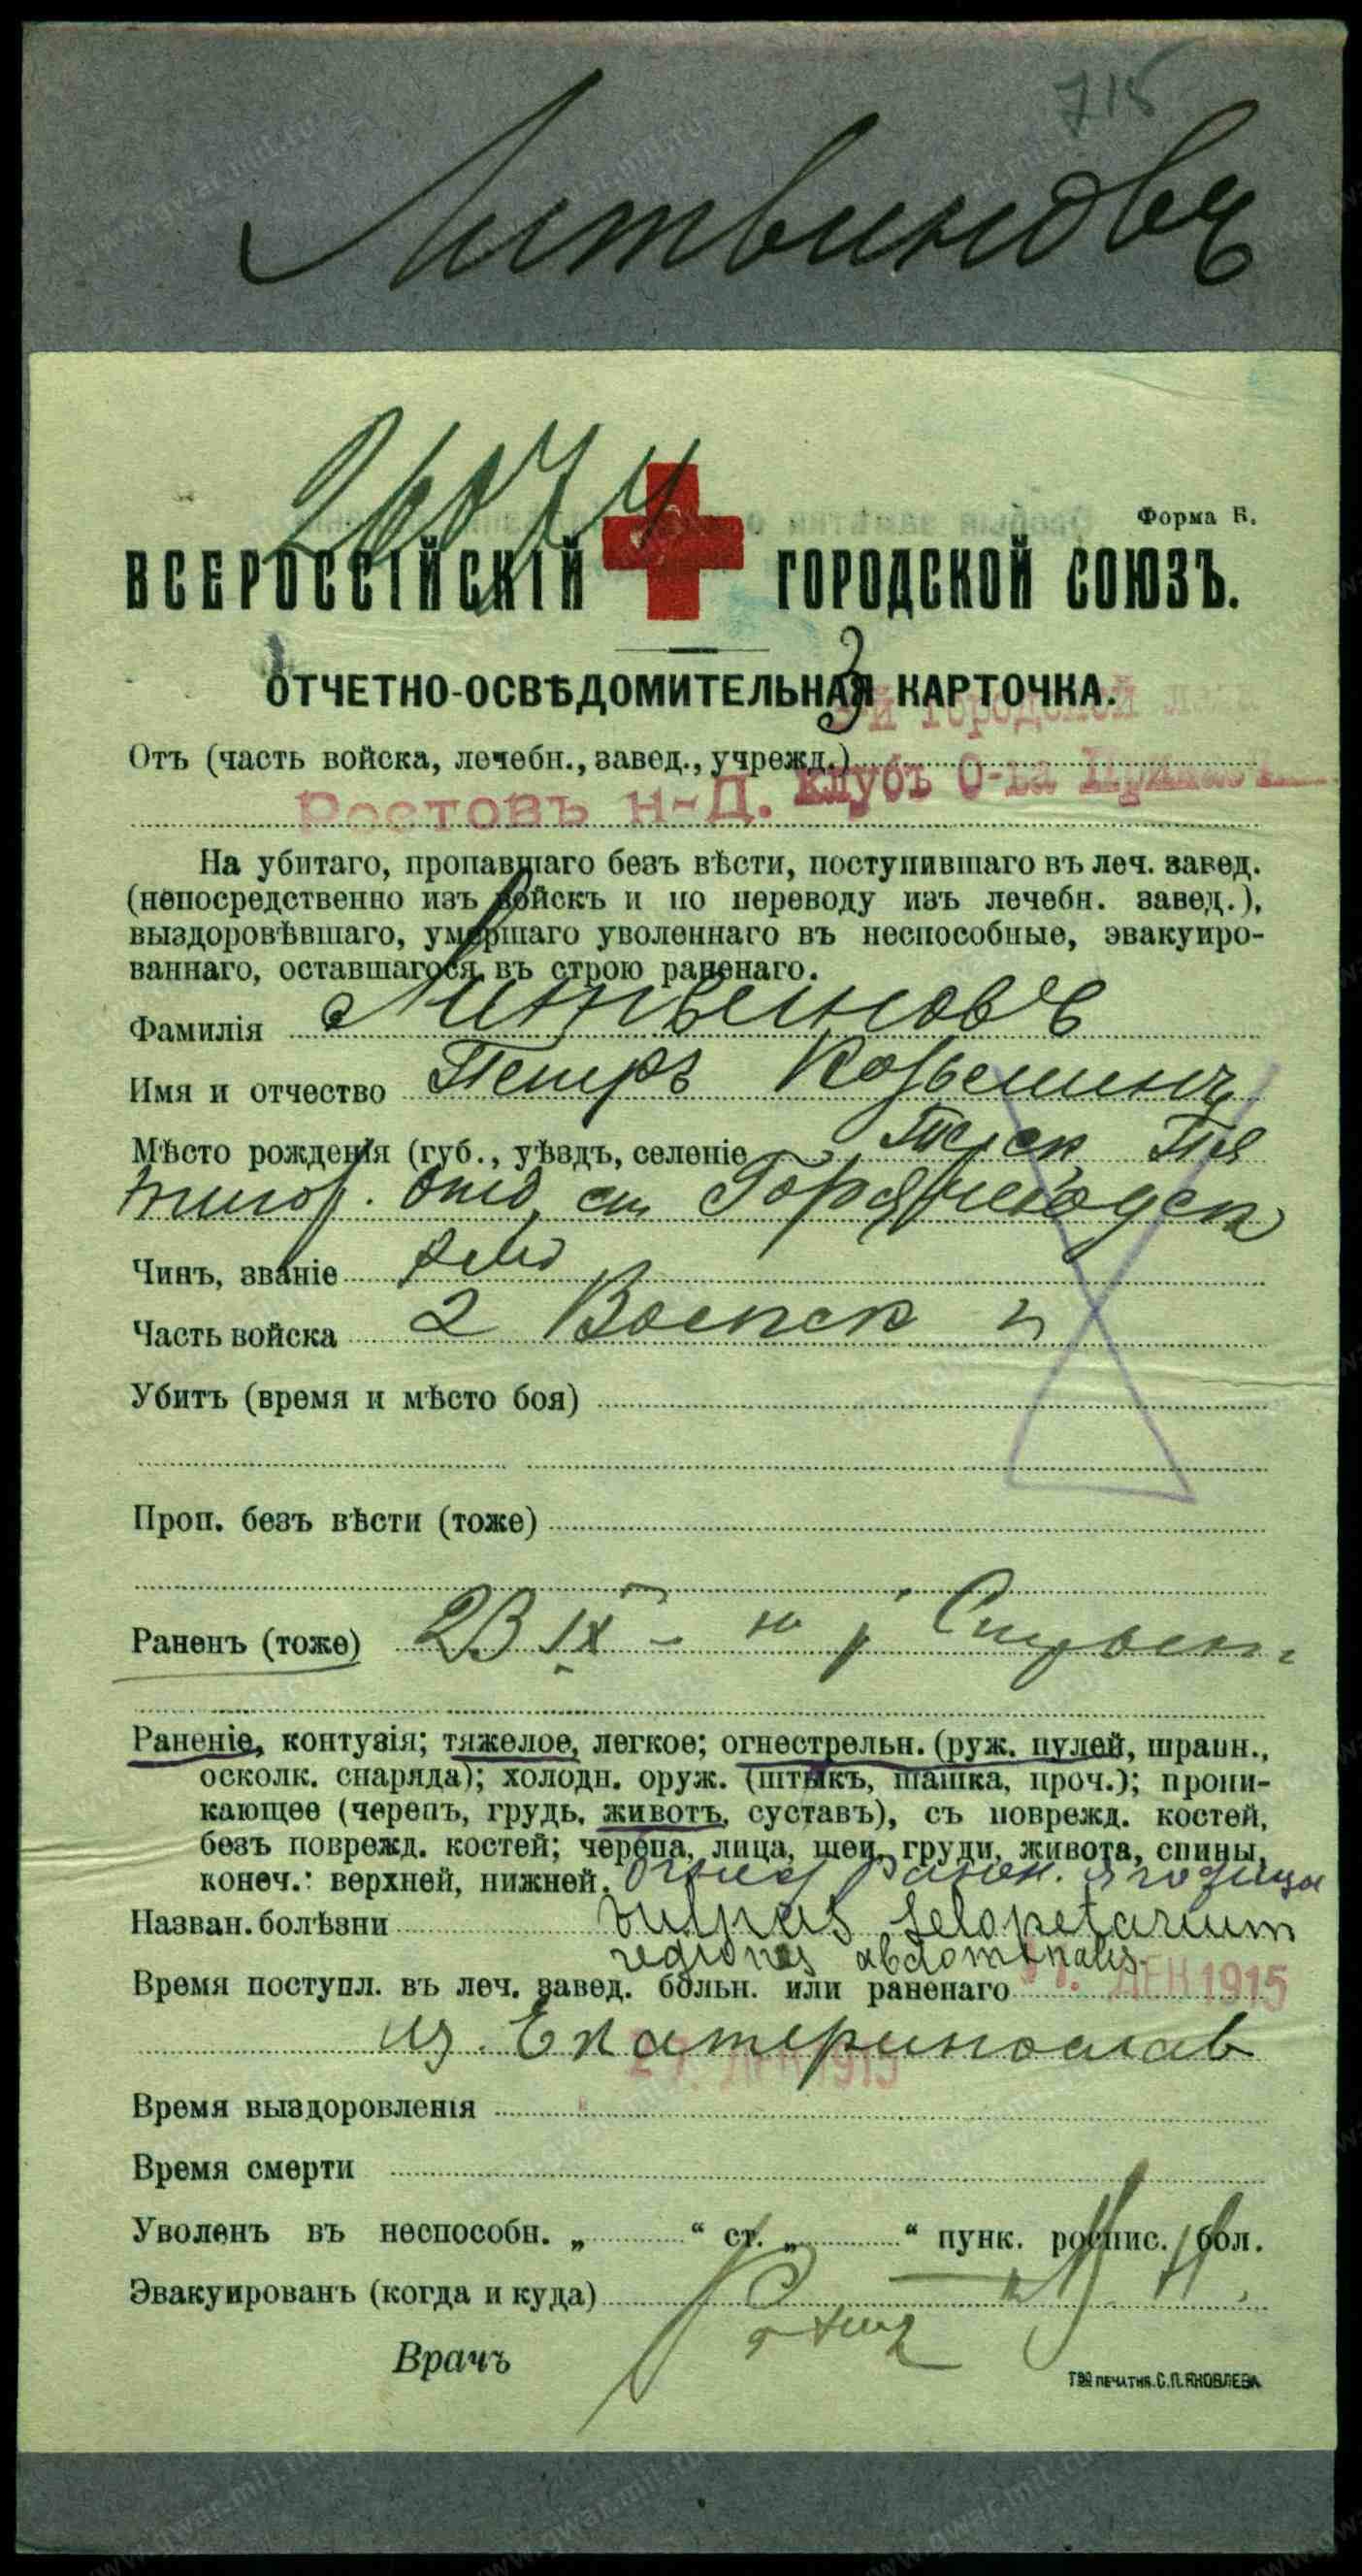 715
Литвиновъ
26074
Форма В.
ВСЕРОССІЙСКІЙ ГОРОДСКОЙ СОЮЗЪ.
ОТЧЕТНО-ОСВѢДОМИТЕЛЬНАЯ КАРТОЧКА.
3й городской
Отъ (часть войска, лечебн., завед., учрежд.)
клубъ О-ва Приказч.
Ростовъ н-Д.
На убитаго, пропавшаго безъ вѣсти, поступившаго въ леч. завед.
(непосредственно изъ войскъ и по переводу изъ лечебн. завед.),
выздоровѣвшаго, умершаго уволеннаго въ неспособные, эвакуиро-
ваннаго, оставшагося въ строю раненаго.
Фамилія Литвиновъ
Имя и отчество Петръ Козьминъ
Мѣсто рожденія (губ., уѣздъ, селеніе Терск Пя
тигор. отд, ст Горячеводск
Чинъ, званіе
Часть войска 2
Убитъ (время и мѣсто боя)
Проп. безъ вѣсти (тоже)
Раненъ (тоже) 23 IX - на р
Раненіе, контузія; тяжелое, легкое; огнестрельн. (руж. пулей, шрапн.,
осколк. снаряда); холодн. оруж. (штыкъ, шашка, проч.); прони-
кающее (черепъ, грудь, животъ, суставъ), съ поврежд. костей,
безъ поврежд. костей; черепа, лица, шеи, груди, живота, спины,
конеч.: верхней, нижней. ягодицы
Назван. болѣзни vulnus selopetarium
regiones abdominalis.
Время поступл. въ леч. завед. больн. или раненаго ДЕК 1915
из. Екатеринослав
27. ДЕК 1915
Время выздоровленія
Время смерти
Уволенъ въ неспособн. „ “ ст. „ “ пунк. роспис. бол.
Эвакуированъ (когда и куда)
Врачъ
Т-во ПЕЧАТНЯ. С.П. ЯКОВЛЕВА